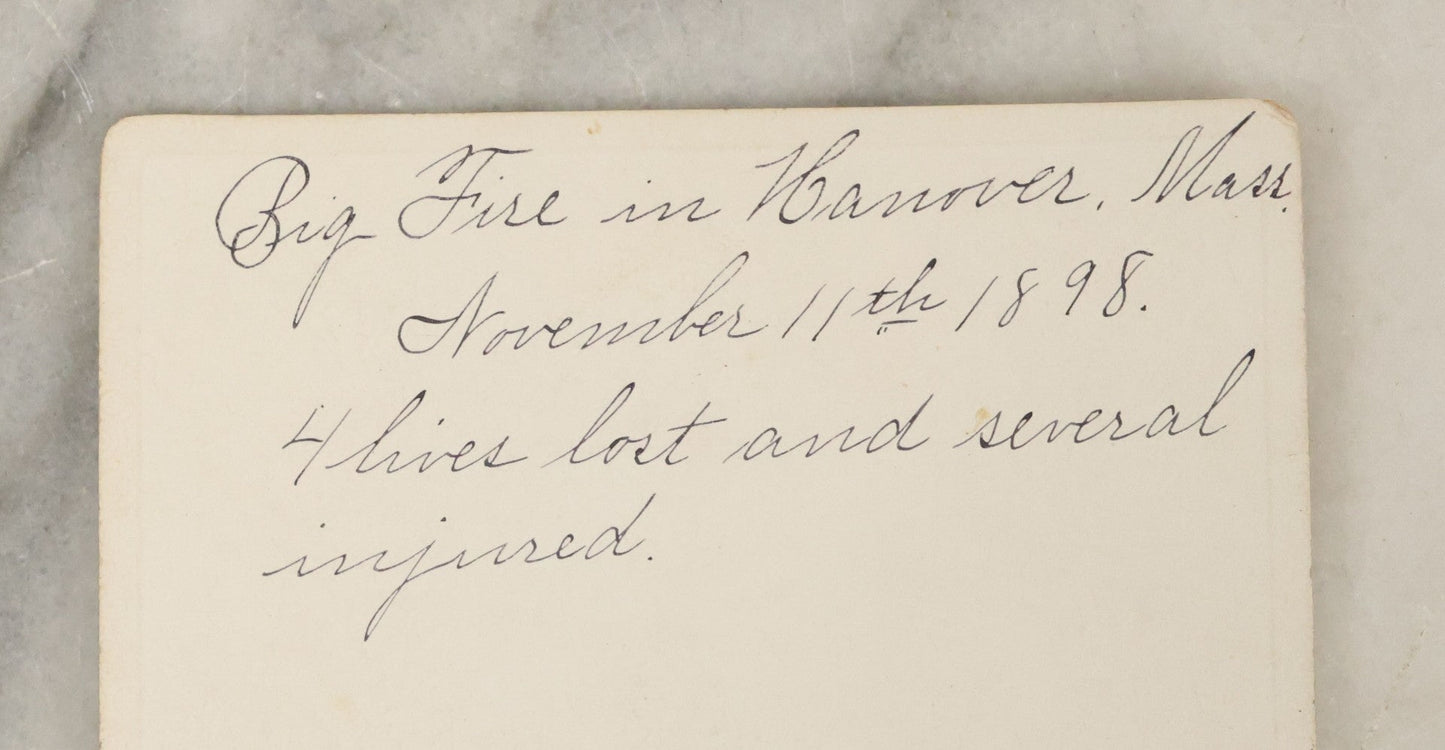 Big Fire in Hanover, Mass.
November 11th 1898.
4 lives lost and several
injured.